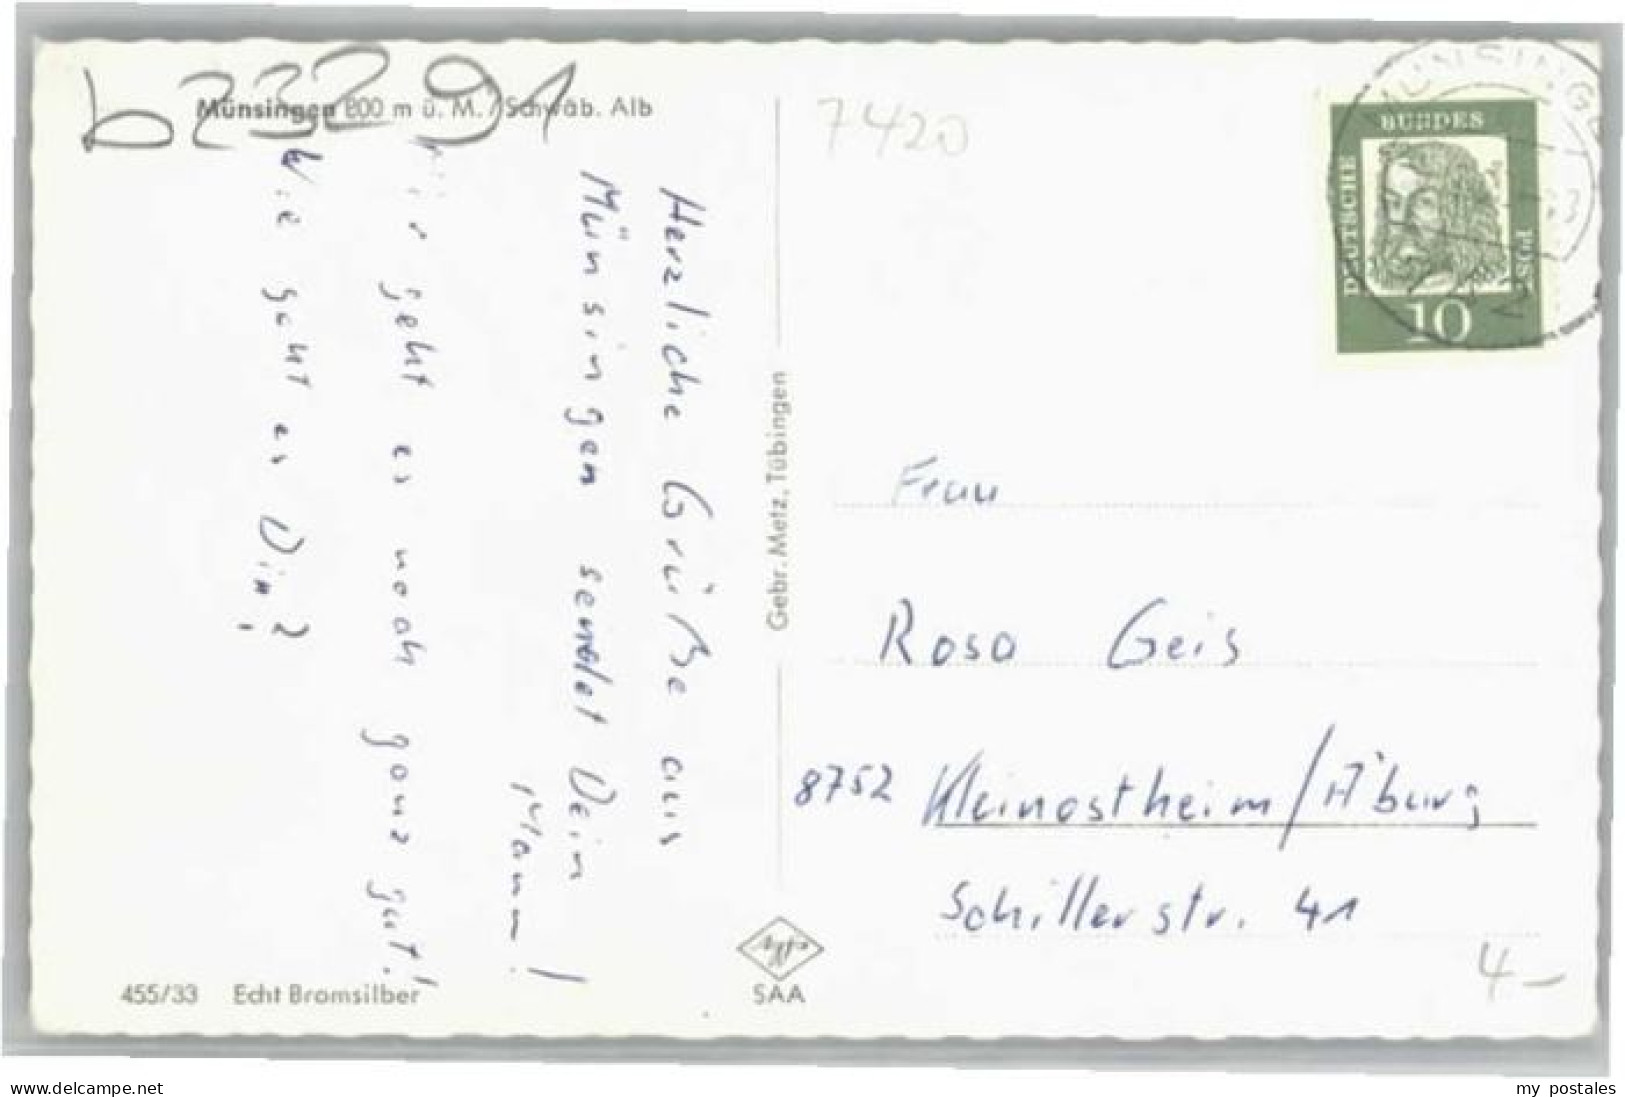 b23291
Münsingen 800 m ü. M. / Schwäb. Alb
Herzliche Grüße aus
Münsingen sendet Dein
Mann!
Mir geht es noch ganz gut!
Wie geht es Dir?
455/33 Echt Bromsilber
Gebr. Metz, Tübingen
SAA
7420
MÜNSINGEN
DEUTSCHE
BUNDES
POST
10
Frau
Rosa Geis
8752 Kleinostheim/A'burg
Schillerstr. 41
4-
www.delcampe.net
my_postales